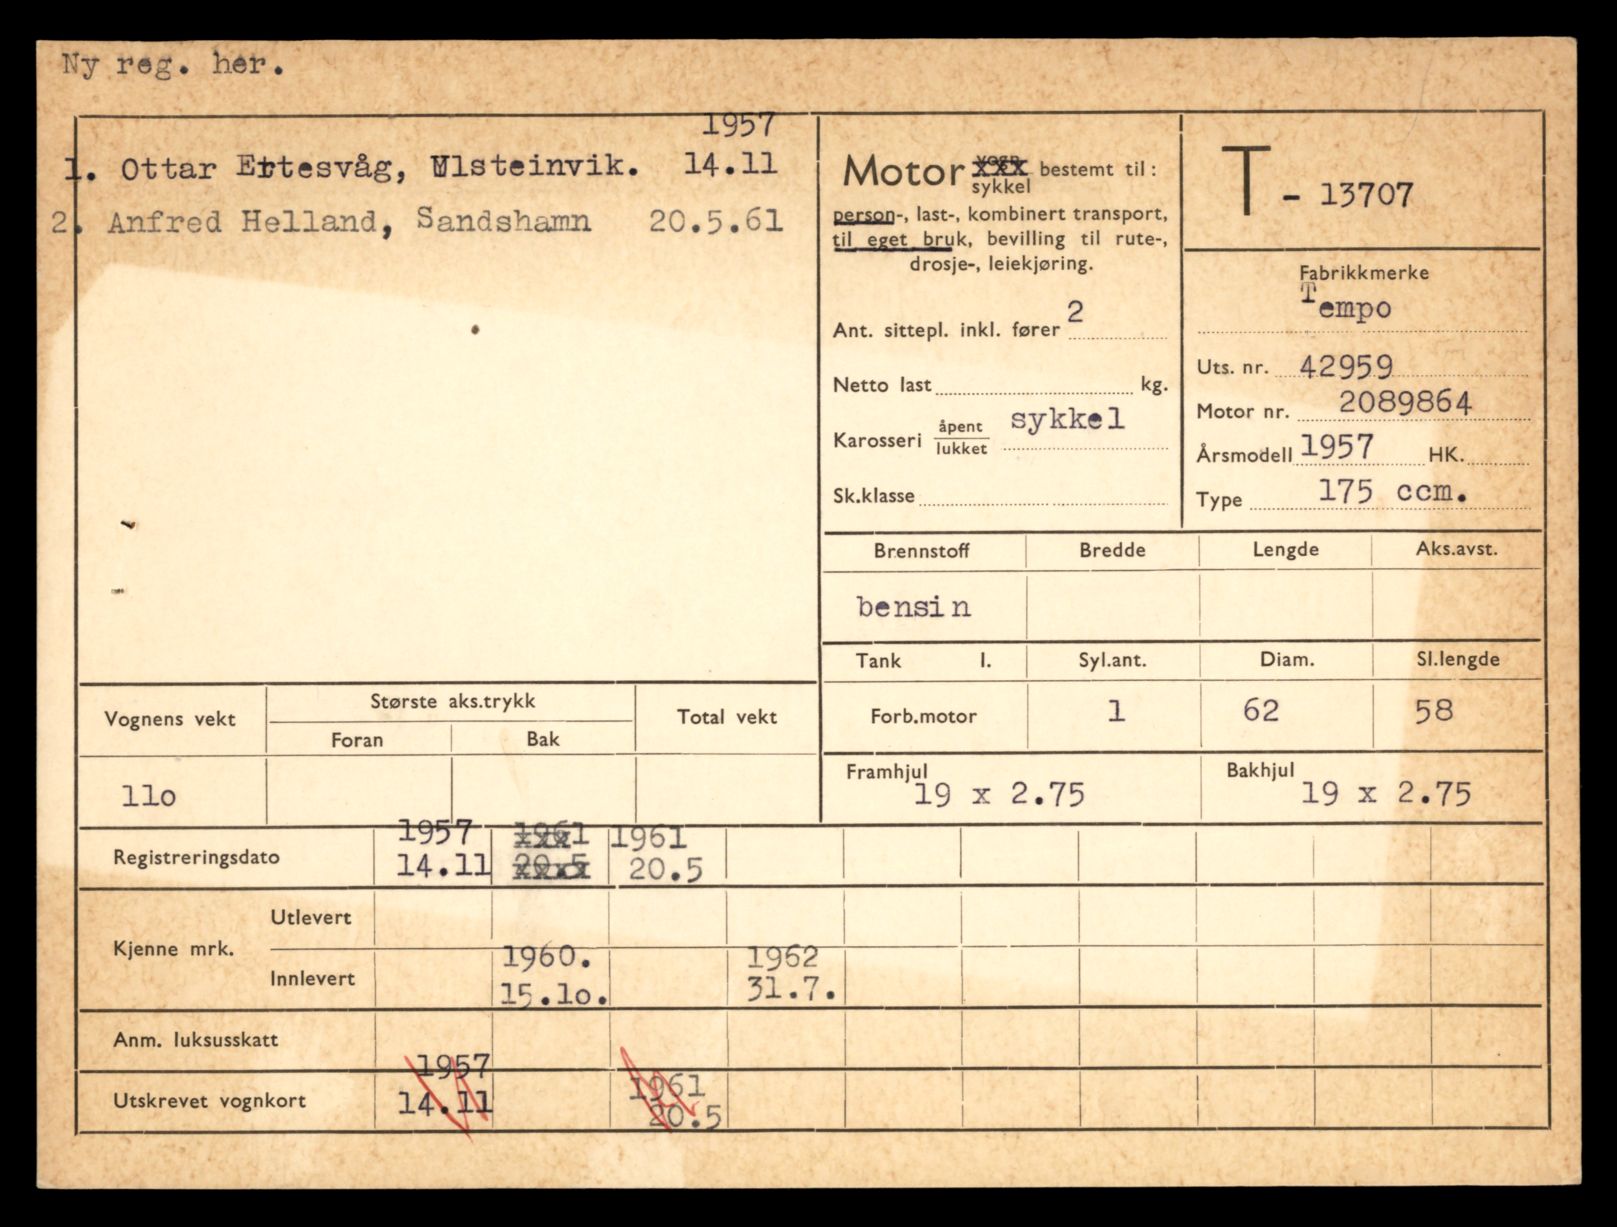 Ny reg. her.
1957
1. Ottar Ertesvåg, Ulsteinvik. 14.11
2. Anfred Helland, Sandshamn 20.5.61
Motor vogn bestemt til:
sykkel
person-, last-, kombinert transport,
til eget bruk, bevilling til rute-,
drosje-, leiekjøring.
Ant. sittepl. inkl. fører 2
Netto last kg.
Karosseri åpent sykkel
lukket
Sk.klasse
T - 13707
Fabrikkmerke
Tempo
Uts. nr. 42959
Motor nr. 2089864
Årsmodell 1957 HK.
Type 175 ccm.
Brennstoff Bredde Lengde Aks.avst.
bensin
Tank l. Syl.ant. Diam. Sl.lengde
Forb.motor 1 62 58
Framhjul Bakhjul
19 x 2.75 19 x 2.75
Vognens vekt Største aks.trykk Total vekt
Foran Bak
11o
1957 1961 1961
Registreringsdato 14.11 20.5 20.5
Kjenne mrk. Utlevert
1960. 1962
Innlevert 15.1o. 31.7.
Anm. luksusskatt
1957 1961
Utskrevet vognkort 14.11 20.5